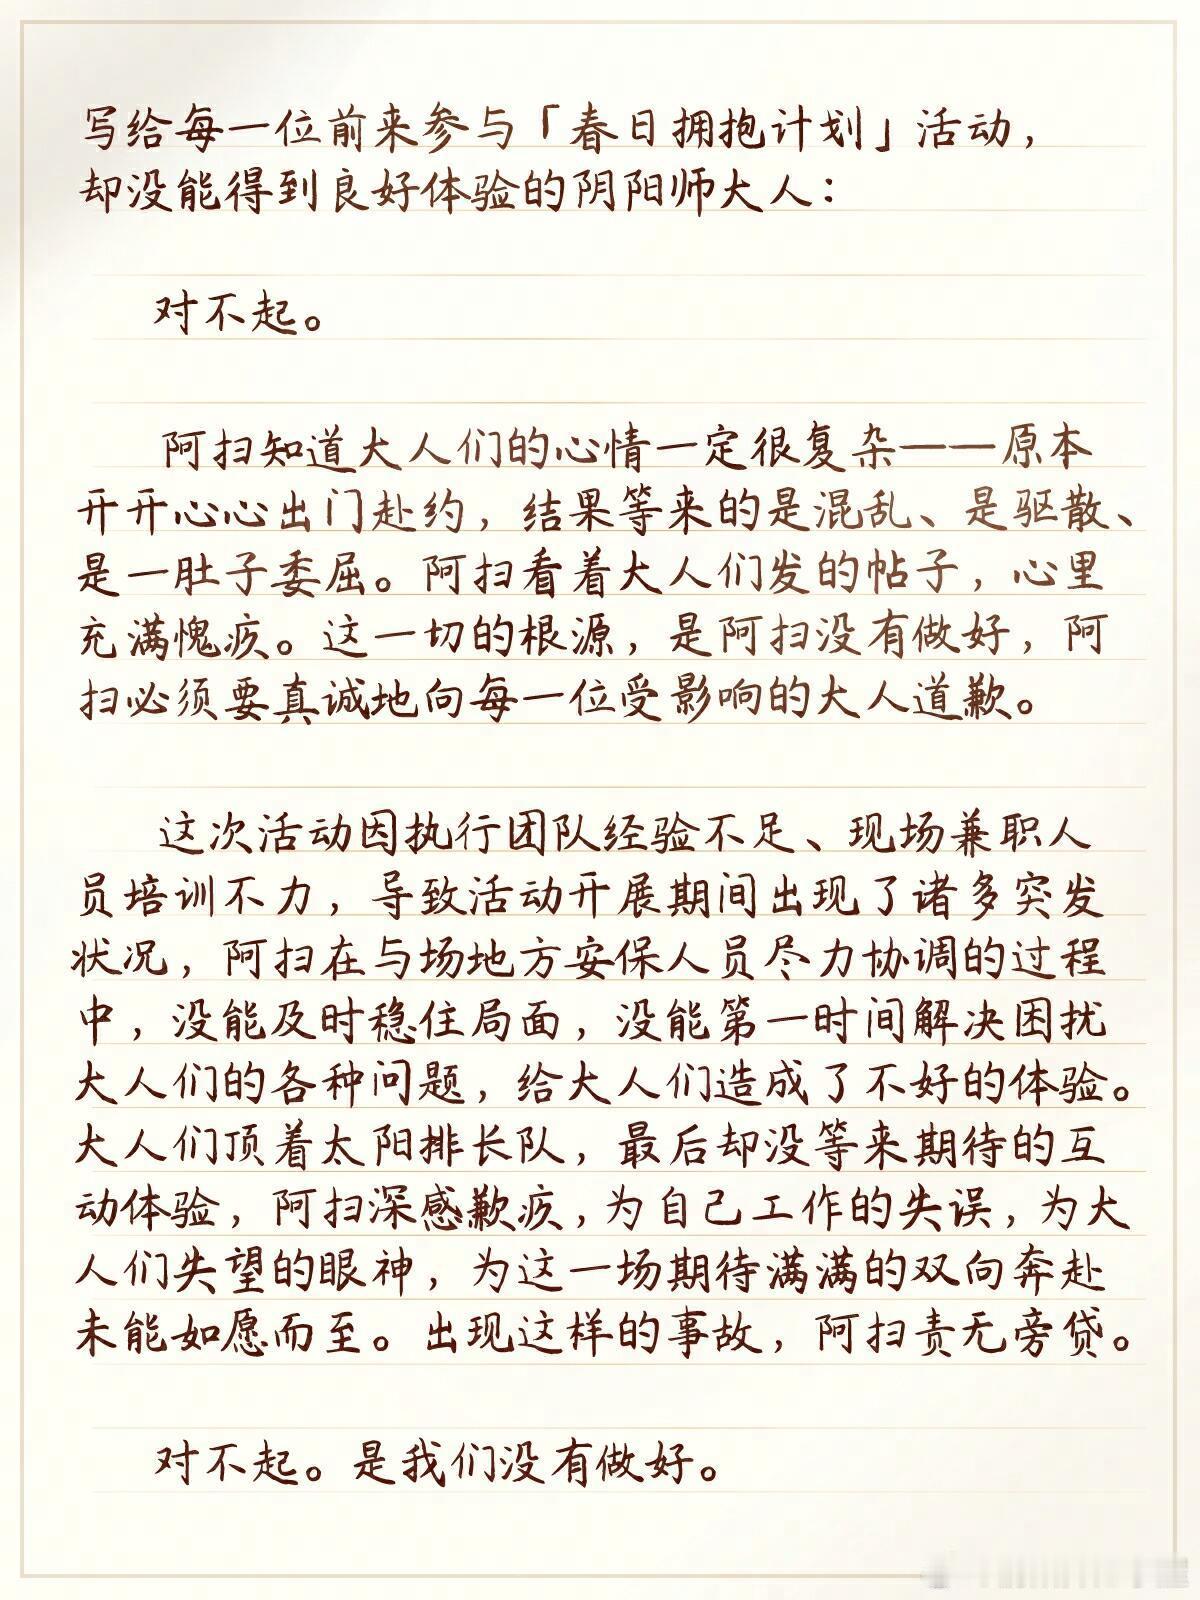 写给每一位前来参与「春日拥抱计划」活动，
却没能得到良好体验的阴阳师大人：
对不起。
阿扫知道大人们的心情一定很复杂——原本
开开心心出门赴约，结果等来的是混乱、是驱散、
是一肚子委屈。阿扫看着大人们发的帖子，心里
充满愧疚。这一切的根源，是阿扫没有做好，阿
扫必须要真诚地向每一位受影响的大人道歉。
这次活动因执行团队经验不足、现场兼职人
员培训不力，导致活动开展期间出现了诸多突发
状况，阿扫在与场地方安保人员尽力协调的过程
中，没能及时稳住局面，没能第一时间解决困扰
大人们的各种问题，给大人们造成了不好的体验。
大人们顶着太阳排长队，最后却没等来期待的互
动体验，阿扫深感歉疚，为自己工作的失误，为大
人们失望的眼神，为这一场期待满满的双向奔赴
未能如愿而至。出现这样的事故，阿扫责无旁贷。
对不起。是我们没有做好。